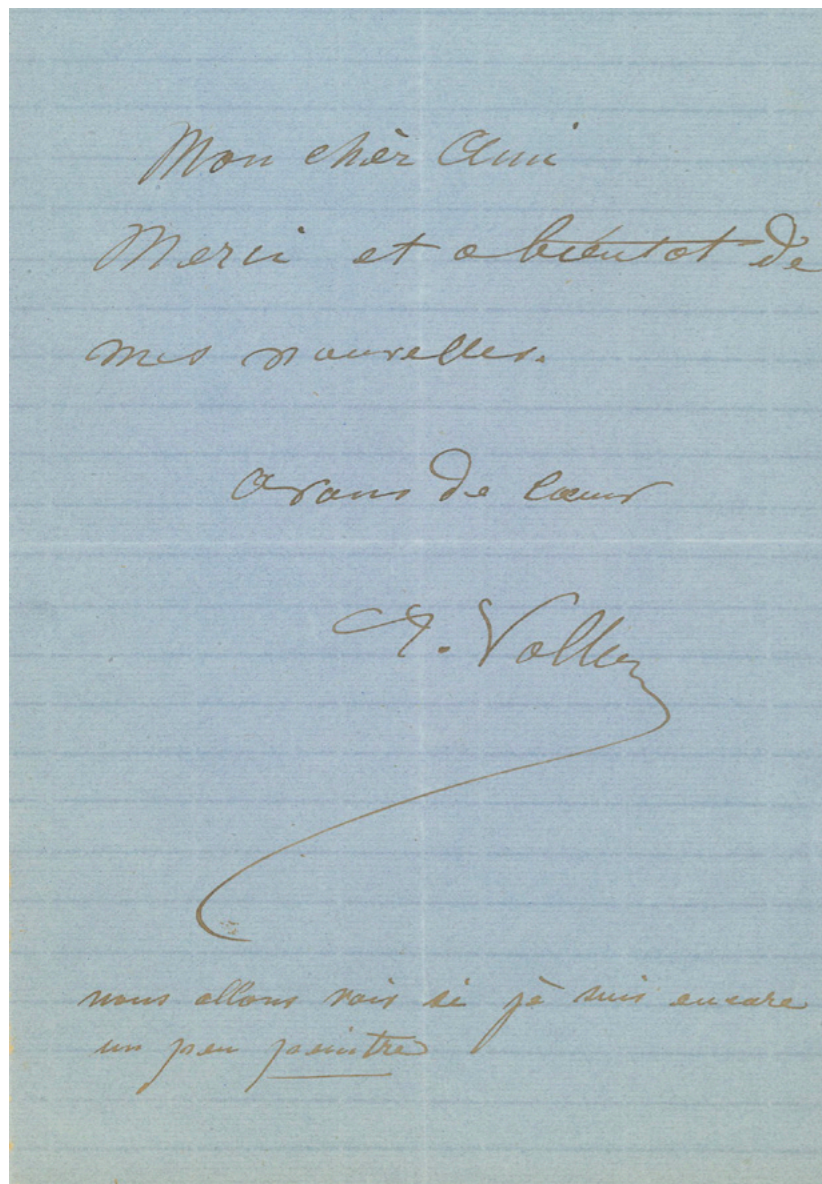 Mon chèr Ami
Merci et a bientot de
mes nouvelles.
a vous de cœur
A. Vollon
nous allons voir si je suis encore
un peu peintre